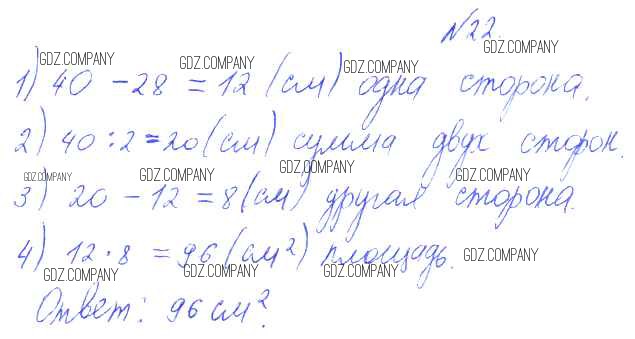 N22.
GDZ.COMPANY GDZ.COMPANY GDZ.COMPANY GDZ.COMPANY
1) 40 - 28 = 12 (см) одна сторона.
2) 40 : 2 = 20 (см) сумма двух сторон.
GDZ.COMPANY GDZ.COMPANY GDZ.COMPANY GDZ.COMPANY
3) 20 - 12 = 8 (см) другая сторона.
4) 12 · 8 = 96 (см²) площадь.
GDZ.COMPANY GDZ.COMPANY GDZ.COMPANY GDZ.COMPANY
Ответ: 96 см².